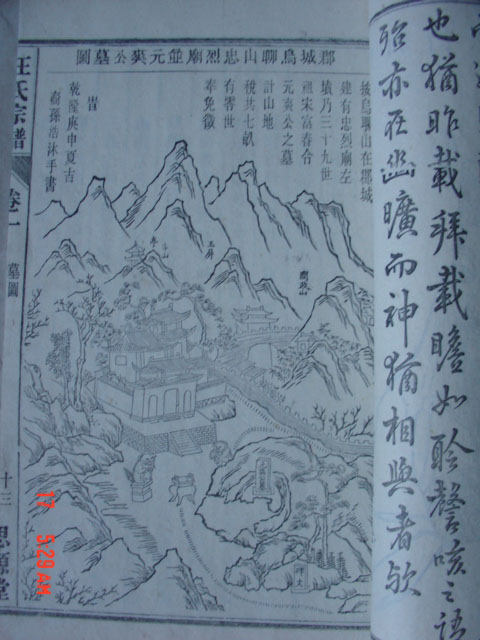 也猶昨載拜載瞻如聆謦咳之語
殆亦在幽曠而神猶相與者欤
郡城烏聊山忠烈廟並元奭公墓圖
按烏聊山在郡城
建有忠烈廟左
墳乃三十九世
祖宋富春合
元奭公之墓
計山地
稅共七畝
有奇世
奉免徵
旹
乾隆庚申夏吉
裔孫浩沐手書
問政山
玉屏
斗山
汪氏宗譜
卷一
墓圖
十三
思源堂
17 5:29AM